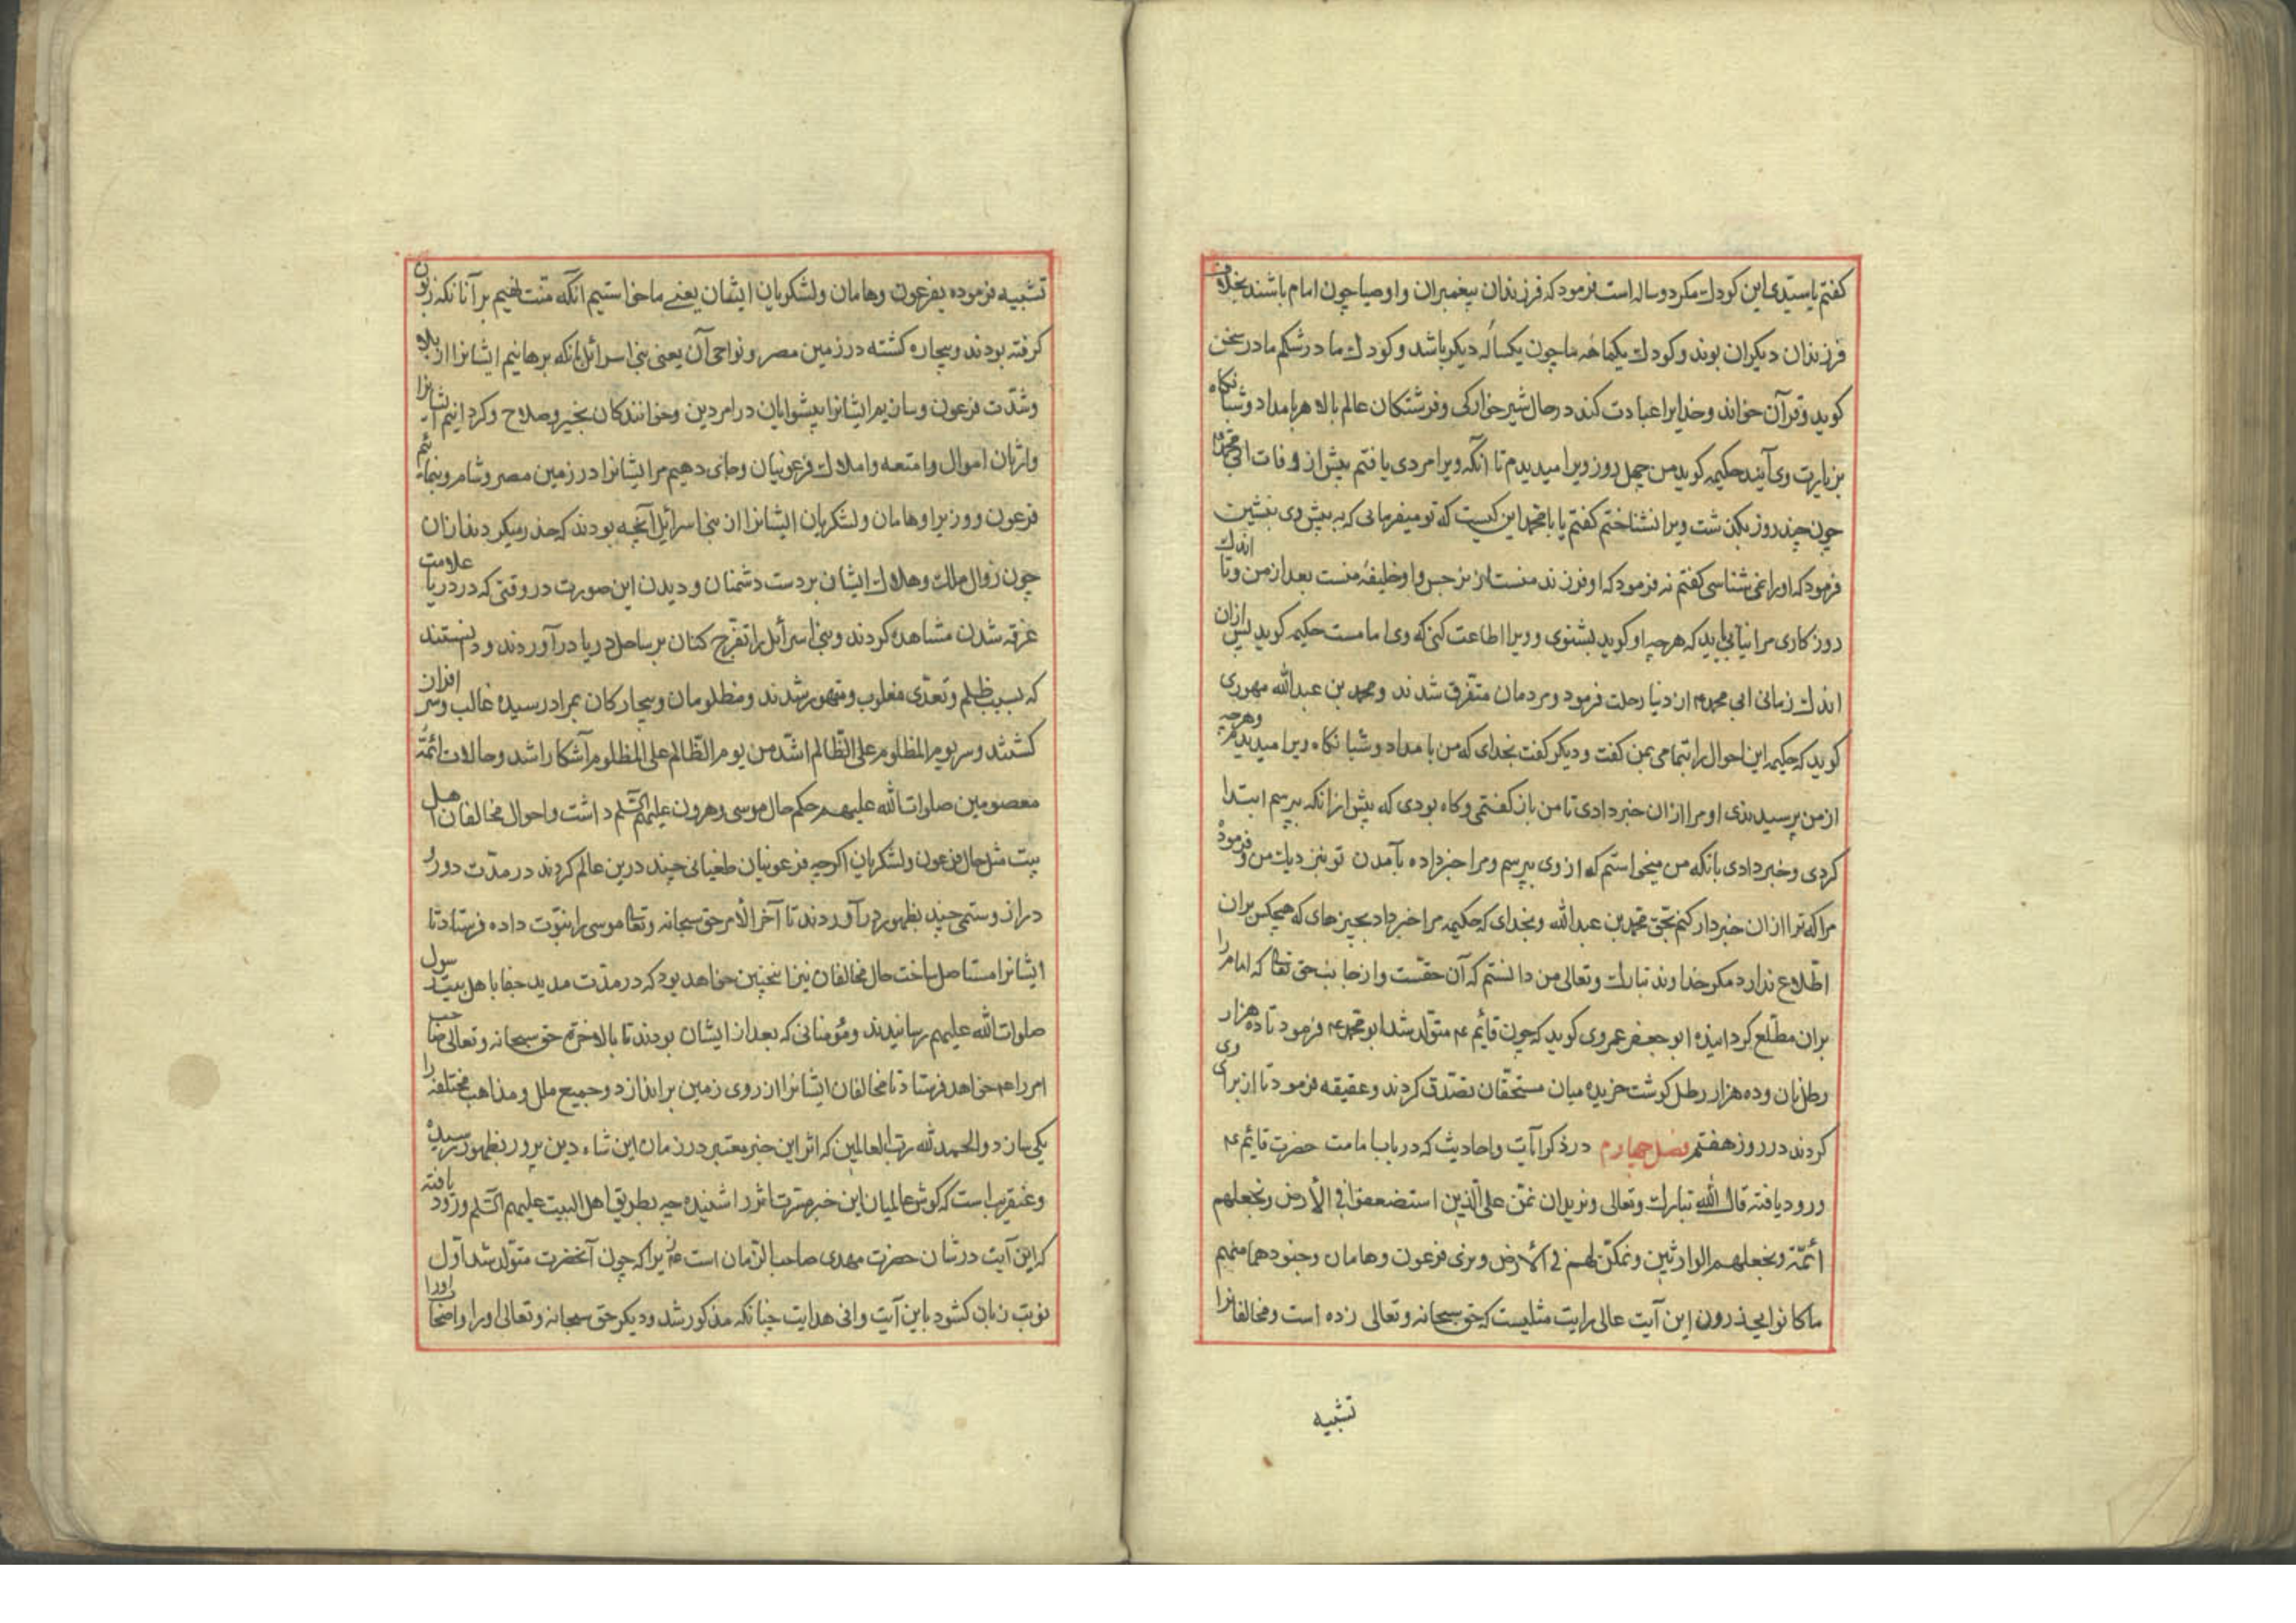 کفتم یا سیّدی این کودك مکر دوساله است فرمود که فرزندان پیغمبران و اوصیا چون امام باشند بخلاف
فرزندان دیکران بوند و کودك یکماهٔه ما چون یکسالٔه دیکر باشد و کودك ما در شکم مادر سخن
کوید و قرآن خواند و خدایرا عبادت کند در حال شیر خوارکی و فرشتکان عالم بالا هر بامداد و شبانکاه
بزیارت وی آیند حکیمه کوید من چهل روز ویرا میدیدم تا انکه ویرا مردی یافتم پیش از وفات ابی محمد
چون چند روز بکذشت ویرا نشناختم کفتم یا بامحمد این کیست که تو میفرمایی که به پیش وی بنشین
فرمود که او را نمی شناسی کفتم نه فرمود که او فرزند منست از نرجس و او خلیفهٔ منست بعد از من و تا اندك
روزکاری مرا نیابی باید که هرچه او کوید بشنوی و ویرا اطاعت کنی که وی امامست حکیمه کوید پس ازان
اندك زمانی ابی محمد ع از دنیا رحلت فرمود و مردمان متفرق شدند و محمد بن عبدالله مهوری
کوید که حکیمه این احوال را بتمامی بمن کفت و دیکر کفت بخدای که من بامداد و شبانکاه ویرا میدیدم و هرچه
از من پرسیدندی او مرا ازان خبر دادی تا من باز کفتمی و کاه بودی که پیش ازانکه بپرسم ابتدا
کردی و خبر دادی بانکه من میخواستم که از وی بپرسم و مرا خبر داده بآمدن تو بنزدیك من و فرمود
مرا که ترا ازان خبردار کنم بحق محمد بن عبدالله و بخدای که حکیمه مرا خبر داد بچیزهای که هیچکس بران
اطلاع ندارد مکر خداوند تبارك و تعالی من دانستم که آن حقست و از جانب حق تعالی که امام را
بران مطّلع کردانیده ابو جعفر عمروی کوید که چون قائم ع متولد شد ابو محمد ع فرمود تا ده هزار
رطل نان و ده هزار رطل کوشت خریده میان مستحقّان تصدّق کردند و عقیقه فرمود تا از برای وی
کردند در روز هفتم فصل چهارم در ذکر آیات و احادیث که در باب امامت حضرت قایم ع
ورود یافته قال الله تبارك و تعالی و نرید ان نمنّ علی الّذین استضعفوا فی الأرض و نجعلهم
أئمّة و نجعلهم الوارثین و نمکّن لهم فی الأرض و نری فرعون و هامان و جنودهما منهم
ما کانوا یحذرون این آیت عالی رایت مثلیست که حق سبحانه و تعالی زده است و مخالفانرا
تشبیه
تشبیه فرموده بفرعون و هامان و لشکریان ایشان یعنی ما خواستیم انکه منت نهیم بر آنانکه زبون
کرفته بودند و بیچاره کشته در زمین مصر و نواحی آن یعنی بنی اسرائیل بانکه برهانیم ایشانرا از بلا
و شدّت فرعون و سانیم ایشانرا پیشوایان در امر دین و خوانندکان بخیر و صلاح و کردانیم ایشانرا
وارثان اموال و امتعه و املاك فرعونیان و جای دهیم مر ایشانرا در زمین مصر و شام و بنمائیم
فرعون و وزیر او هامان و لشکریان ایشانرا از بنی اسرائیل آنچه بودند که حذر میکردند ازان
چون زوال ملك و هلاك ایشان بردست دشمنان و دیدن این صورت در وقتی که در دریا علامت
غرقه شدن مشاهده کردند و بنی اسرائیل را تفرج کنان بر ساحل دریا درآوردند و دانستند
که بسبب ظلم و تعدّی مغلوب و مقهور شدند و مظلومان و بیچارکان بمراد رسیده غالب و سر افراز
کشتند و سر یوم المظلوم علی الظّالم اشدّ من یوم الظّالم علی المظلوم آشکارا شد و حالات ائمّه
معصومین صلوات الله علیهم حکم حال موسی و هرون علیهما السّلم داشت و احوال مخالفان اهل
بیت مثل حال فرعون و لشکریان اکرچه فرعونیان طغیانی چند درین عالم کردند در مدّت دور
دراز و ستمی چند بظهور درآوردند تا آخر الأمر حق سبحانه و تعالی موسی را نبوّت داده فرستاد تا
ایشانرا مستاصل ساخت حال مخالفان نیز اینچنین خواهد بود که در مدّت مدید جفا با هل بیت رسول
صلوات الله علیهم رسانیدند و مؤمنانی که بعد از ایشان بودند تا بالاخره حق سبحانه و تعالی صاحب
امر را ع خواهد فرستاد تا مخالفان ایشانرا از روی زمین براندازد و جمیع ملل و مذاهب مختلفه را
یکی سازد و الحمد لله رب العالمین که اثر این خبر معتبر در زمان این شاه دین پرور بظهور رسیده
و عنقریب است که کوش عالمیان این خبر مسرت اثر را شنیده چه بطریق اهل البیت علیهم السّلم ورود یافته
که این آیت در شان حضرت مهدی صاحب الزمان است ع زیرا که چون آنحضرت متولد شد اوّل
نوبت زبان کشود باین آیت وافی هدایت چنانکه مذکور شد و دیکر حق سبحانه و تعالی او را و اصحاب او را